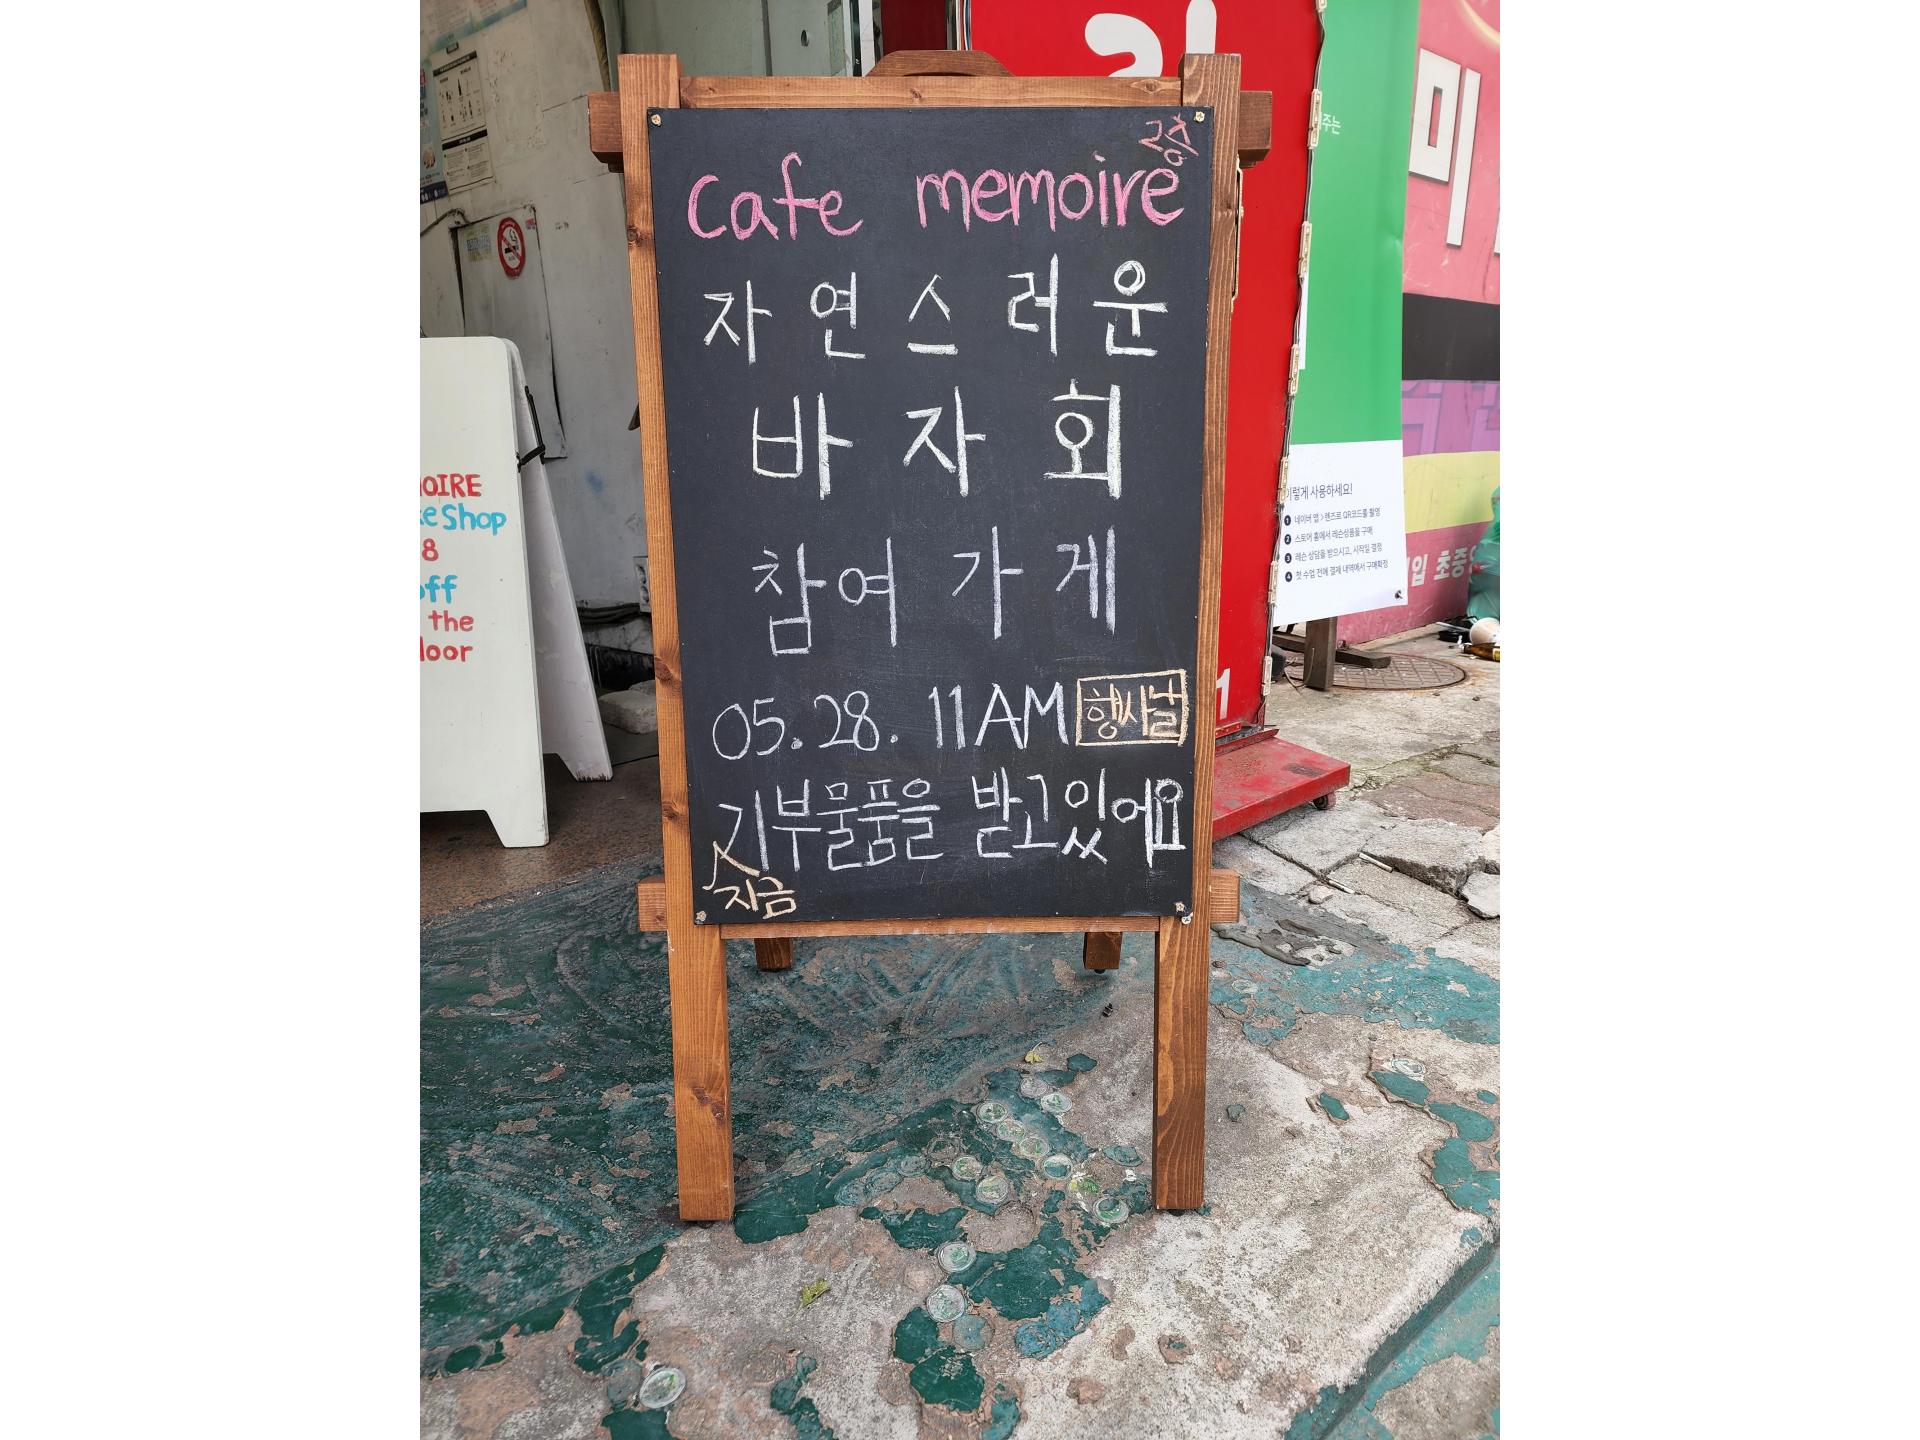 cafe memoire
자연스러운
바자회
참여 가게
05.28. 11AM 행사날
기부물품을 받고있어요
지금
OIRE
eShop
8
off
the
loor
미
주는
이렇게 사용하세요!
1 네이버 앱 > 렌즈로 QR코드를 촬영
2 스토어 홈에서 레슨상품을 구매
3 레슨 상담을 받으시고, 시작일 결정
4 첫 수업 전에 결제 내역에서 구매확정
입 초중
1